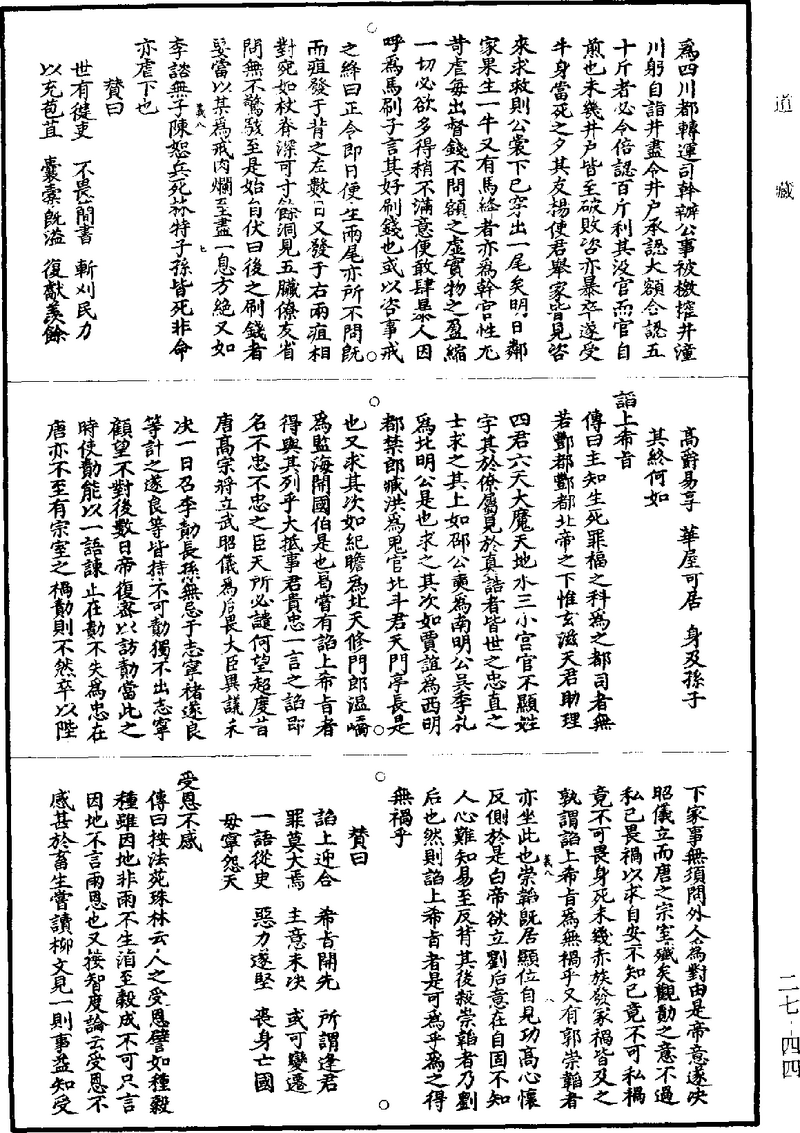 道藏
爲四川都轉運司幹辦公事被檄搉井潼
川躬自詣井盡令井戶承認大額合認五
十斤者必令倍認百斤利其没官而官自
煎也未幾井戶皆至破敗咨亦暴卒遂受
牛身當死之夕其友楊使君舉家皆見咨
來求救則公裳下已穿出一尾矣明日鄰
家果生一牛又有馬絳者亦爲幹官性尤
苛虐每出督錢不問額之虛實物之盈縮
一切必欲多得稍不滿意便敢肆暴人因
呼爲馬刷子言其好刷錢也或以咨事戒
之絳曰正令即日便生兩尾亦所不問旣
而疽發于背之左數日又發于右兩疽相
對宛如杖脊深可寸餘洞見五臟僚友省
問無不驚駭至是始自伏曰後之刷錢者
要當以其爲戒肉爛至盡一息方絶又如
義八 七
李諮無子陳恕兵死林特子孫皆死非命
亦虐下也
贊曰
世有徤吏 不畏簡書 斬刈民力
以充苞苴 囊橐旣溢 復獻羨餘
高爵易享 華屋可居 身及孫子
其終何如
諂上希旨
傳曰主知生死罪福之科爲之都司者無
若酆都酆都北帝之下惟玄滋天君助理
四君六天大魔天地水三小宫官不顯姓
字其於僚屬見於真誥者皆世之忠直之
士求之其上如邵公奭爲南明公吴季札
爲北明公是也求之其次如賈誼爲西明
都禁郎臧洪爲鬼官北斗君天門亭長是
也又求其次如紀瞻爲北天修門郎温嶠
爲監海開國伯是也曷嘗有諂上希旨者
得與其列乎大抵事君貴忠一言之諂即
名不忠不忠之臣天所必譴何望超度昔
唐高宗將立武昭儀爲后畏大臣異議未
决一日召李勣長孫無忌于志寧褚遂良
等計之遂良等皆持不可勣獨不出志寧
顧望不對後數日帝復密以訪勣當此之
時使勣能以一語諫止在勣不失爲忠在
唐亦不至有宗室之禍勣則不然卒以陛
下家事無須問外人爲對由是帝意遂决
昭儀立而唐之宗室殲矣觀勣之意不過
私己畏禍以求自安不知己竟不可私禍
竟不可畏身死未幾赤族發家禍皆及之
孰謂諂上希旨爲無禍乎又有郭崇韜者
義八
亦坐此也崇韜旣居顯位自見功高心懷
反側於是白帝欲立劉后意在自固不知
人心難知易至反背其後殺崇韜者乃劉
后也然則諂上希旨者是可爲乎爲之得
無禍乎
贊曰
諂上迎合 希旨開先 所謂逢君
罪莫大焉 主意未决 或可變遷
一語從臾 惡力遂堅 喪身亡國
毋寧怨天
受恩不感
傳曰按法苑珠林云人之受恩譬如種穀
種雖因地非雨不生洎至穀成不可只言
因地不言雨恩也又按智度論云受恩不
感甚於畜生嘗讀柳文見一則事益知受
二七-四四